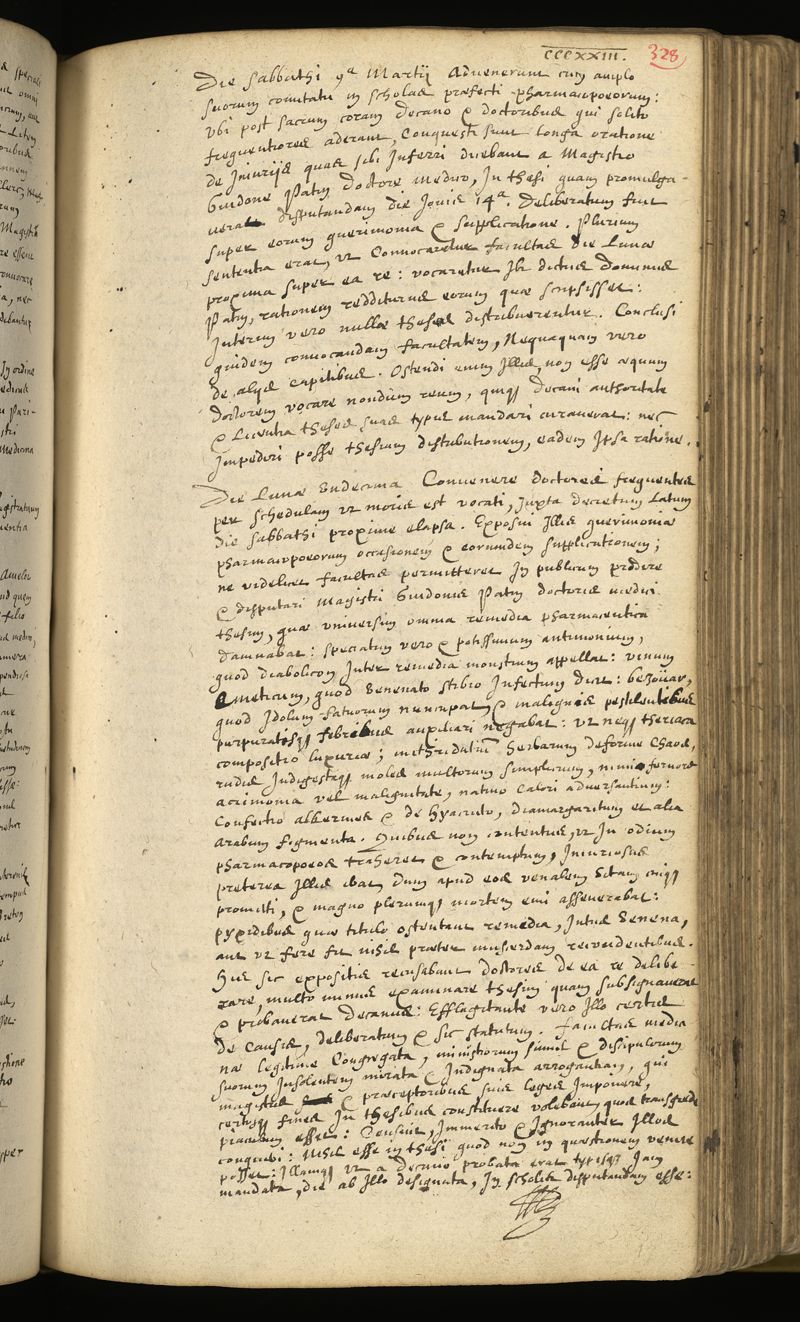 cccxxiii. 328
Die sabbathi 9a Martij Advenerunt cum amplo
suorum comitatu in scholas præfecti pharmacopoeorum:
Ubi post sacrum coram Decano & doctoribus qui solito
frequentiores aderant, Conquesti sunt longa oratione
de Iniurijs quas sibi Inferri dicebant a Magistro
Guidone Patin doctore medico, In thesi quam promulga-
verat disputandam die Jovis 14a. Deliberatum fuit
super eorum querimonia & supplicatione. Plurium
sententia erat, ut Convocaretur facultas die Lunæ
proxima super ea re: vocaretur Ibi dictus Dominus
Patin, rationem redditurus eorum quæ scripsisset:
Interim vero nullæ theses distribuerentur. Conclusi
quidem convocandam facultatem, Nequaquam vero
de alijs capitibus. Ostendi enim Illis, non esse æquum
doctorem vocare nondum reum, quique Decani authoritate
& Licentia theses suas typis mandari curaverat: nec
Impediri posse thesium distributionem, eadem Ipsa ratione.
Die Lunæ Undecima Convenere doctores frequentes
per schedulam ut moris est vocati, Juxta decretum Latum
die sabbathi proxime elapsa. Exposui Illis querimoniæ
pharmacopoeorum occasionem & eorumdem supplicationem;
ne videlicet facultas permitteret In publicum prodire
& disputari Magistri Guidonis Patin doctoris medici
thesim, quæ universim omnia remedia pharmaceutica
damnabat: speciatim vero & potissimum antimonium,
quod diabolicon Inter remedia monstrum appellat: vinum
Emeticum, quod Venenato stibio Infectum dicit: bezoüar,
quod Idolum fatuorum nuncupat, & malignis pestilentibus
purpuratisque febribus auxiliari negabat: ut neque theriaca
compositio luxuriæ; mithridatium herbarum deforme Chaos,
rudis Indigestaque moles multorum simplicium, nimio fervore
acrimonia vel malignitate, nativo Calori adversantium:
Confectio alkermes & de hyacintho, diamargaritum et alia
Arabum figmenta. Quibus non contentus, ut In odium
pharmacopoeos traheret & contemptum, Iniuriosus
præterea Illis ibat dum apud eos venalem Vitam cuique
promitti, & magno plerumque mortem emi asseverabat:
pyxidibus quæ titulo ostentant remedia, Intus Venena,
aut ut fere fit nisi præter muscerdam recondentibus.
His sic expositis recusabant doctores de ea re delibe-
rare, multo minus examinare thesim quam subsignaverat
& probaverat decanus: Efflagitante vero Illo certis
de Causis, deliberatum & sic statutum. facultas medici-
næ legitime Congregata, ministrorum simul & discipulorum
suorum Insolentem mirata & Indignata arrogantiam, qui
magistris & præceptoribus suis leges Imponere,
certosque fines In thesibus constituere volebant, quos transgredi
piaculum esset: Censuit, Immerito & Ignoranter Illos
conqueri: Nihil esse in thesi quod non in quæstionem venire
posset: Illamque ut a decano probata erat typisque Jam
mandata, die ab Illo designata, In scholis disputandam esse: